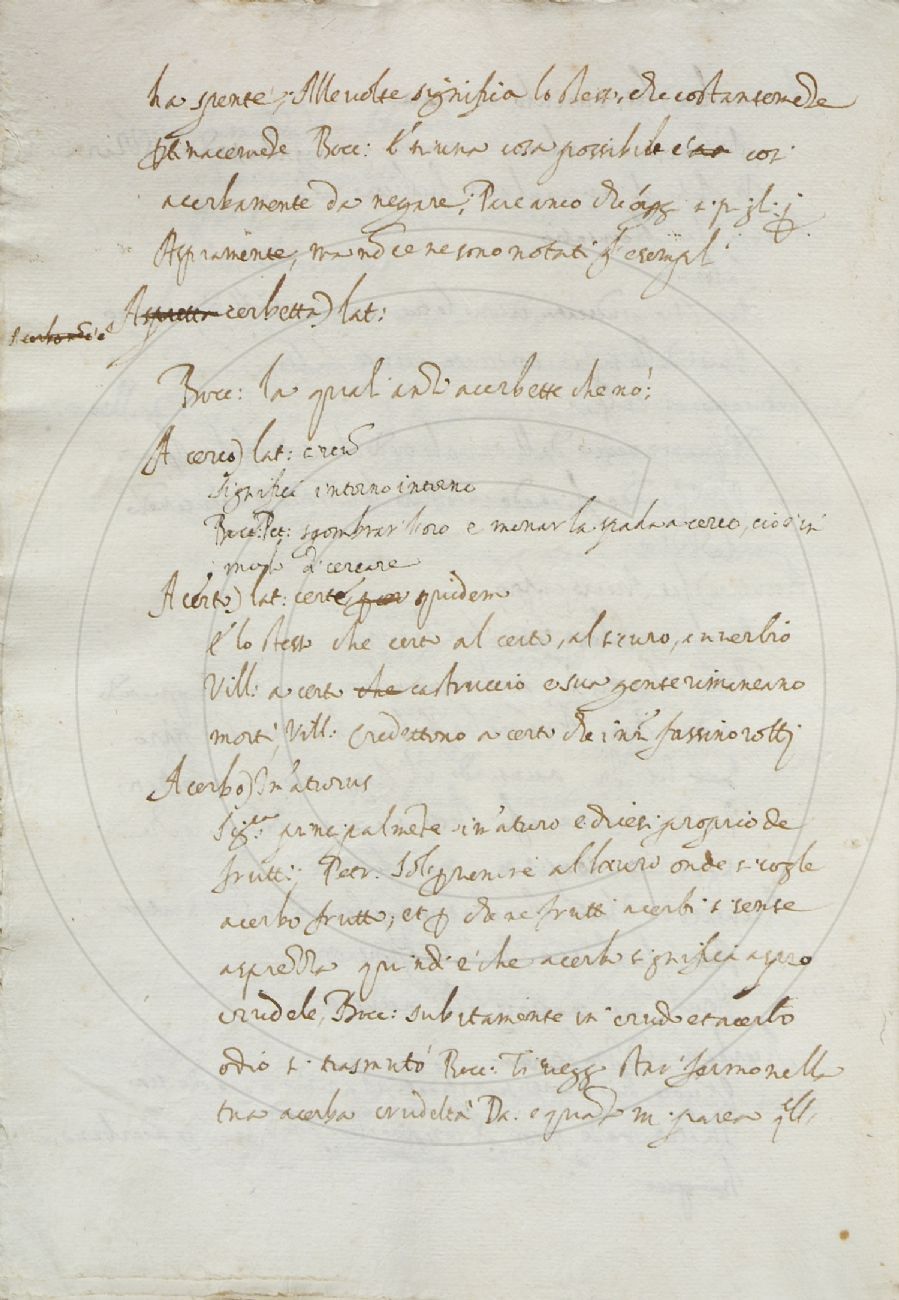 ha spente; Alle volte significa lo stesso, che costantemẽte
ptinacemẽte Bocc: è si una cosa possibile così
acerbamente da negare; Pare anco che ogg si pigli p
Aspramente, ma nõ ce ne sono notati gl'esempli
Acerbetta) lat:
Bocc: la quali anzi acerbette che nò:
A cerco) lat: circũ
Significa intorno intorno
Bocc: Pet: sgombrar l'oro e menar la spada a cerco, cioè in
modo di cercare
A certo) lat: certè, quidem
È lo stesso che certo al certo, al sicuro, avverbio
Vill: a certo che castruccio e sua gente rimaneano
morti, Vill: Credettono a certo che i nri fussino rotti
Acerbo) Im'aturus
Sig:ca principalmẽte im'aturo e dicesi proprio de
frutti; Petr: Sol p venire al lauro onde si cogle
acerbo frutto; et p che ne frutti acerbi si sente
asprezza quindi è che acerbo significa aspro
crudele, Bocc: subitamente in crudo et acerbo
odio si trasmutò Bocc: Ti vegg
tua acerba crudeltà Da: e quãto mi parea